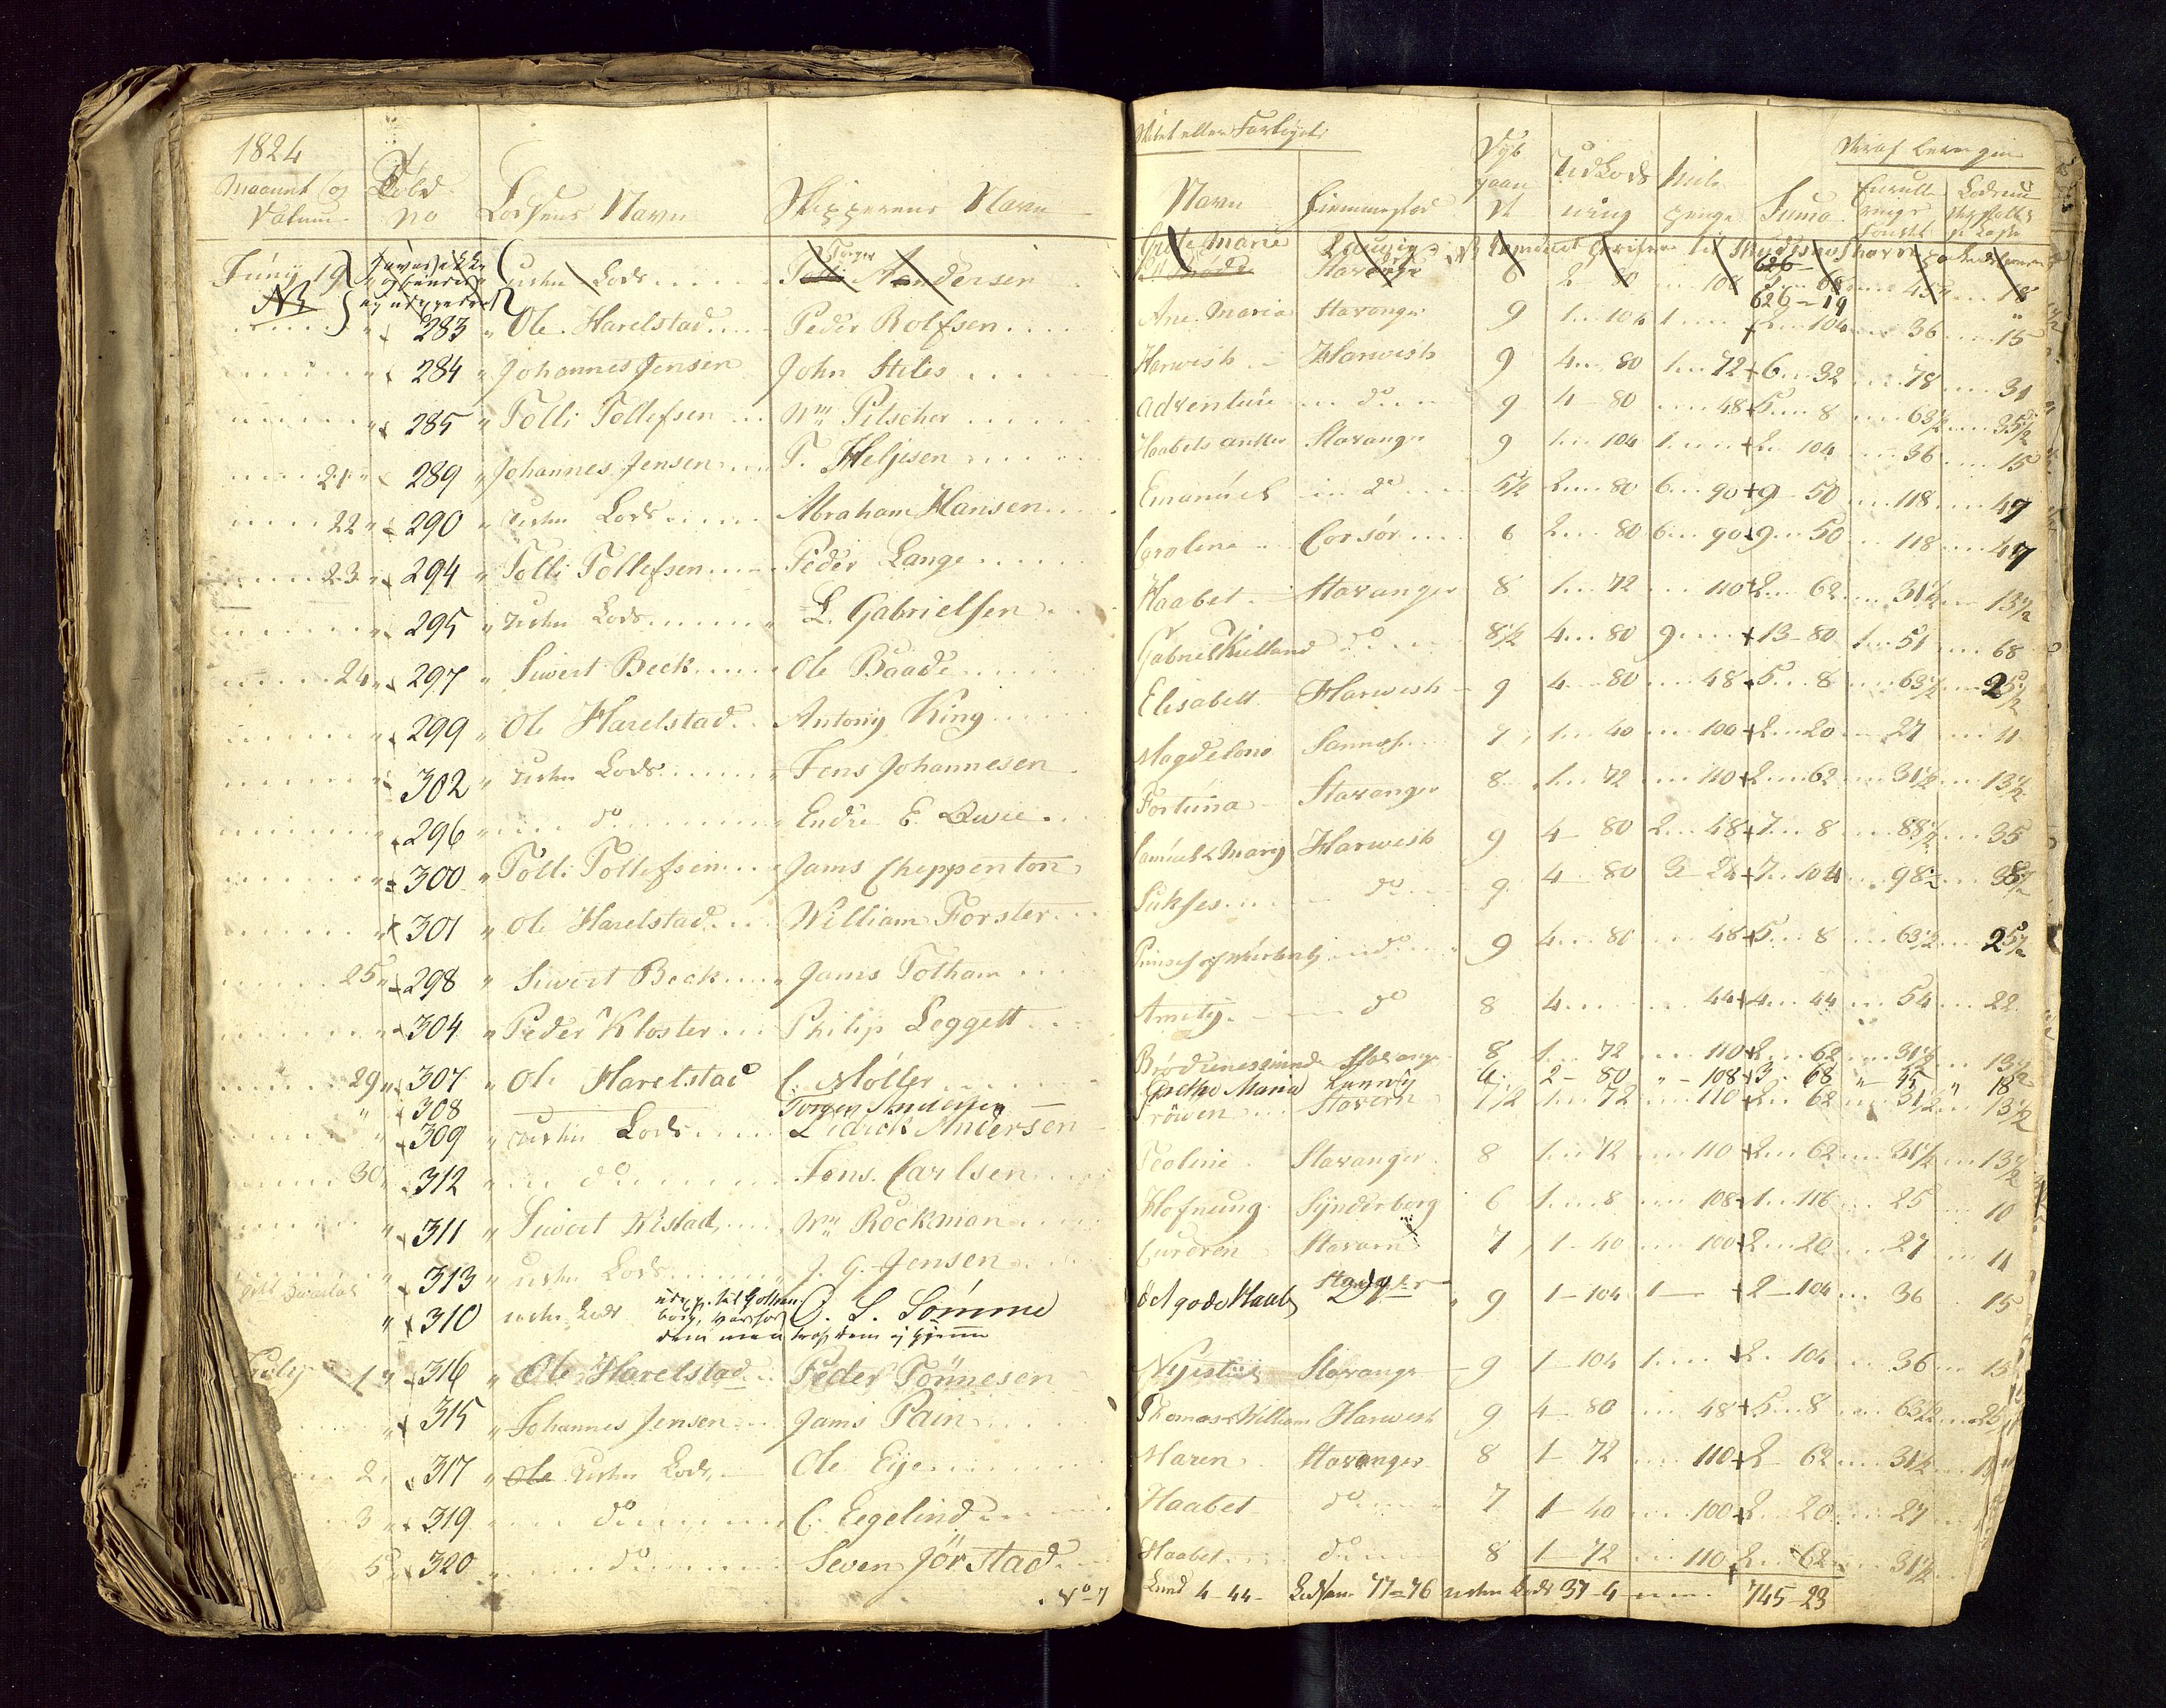 1824
Maanet og Datum Told No Lodsens Navn Skipperens Navn
Juny 19 uden Lods Torger Andersen
NB
" 283 " Ole Harelstad Peder Rolfsen
" 284 " Johannes Jensen John Stiles
" 285 " Tolli Tollefsen Wm Pitscher
21 " 289 " Johannes Jensen T. Heljesen
22 " 290 " uden Lods Abraham Hansen
23 " 294 " Tolli Tollefsen Peder Lange
" 295 " uden Lods L. Gabrielsen
24 " 297 " Siwert Beck Ole Baade
" 299 " Ole Harelstad Antony King
" 302 " uden Lods Jens Johannesen
296 " do Endre E. Qwie
" 300 " Tolli Tollefsen Jams Cheppenton
" 301 " Ole Harelstad William Forster
25 " 298 " Siwert Beck Jams Totham
" 304 " Peder Kloster Philip Leggett
29 " 307 " Ole Harelstad C. Møller
" 308 Torger Andersen
" 309 " uden Lods Didrick Andersen
30 " 312 " do Jens Carlsen
" 311 " Siwert Wistad Wm Rockman
" 313 " uden Lods J. G. Jensen
" 310 uden Lods C. L. Sømme
July 1 " 316 " Ole Harelstad Peder Tønnesen
" 315 " Johannes Jensen Jams Pain
2 " 317 " Ole uden Lods Ole Eije
3 " 319 do C. Eegelind
5 " 320 " do Seven Jørstad
No 7
Skibet eller Fartøyets
Navn Hiemmested Dyb gaaende Udlodsning Mile penge Suma
Grete Marie Stavanger 6 2 80 108 45 18
626 - 19
Ane Maria Stavanger 9 1 104 1 2 104 36 15
Harwish Harwish 9 4 80 1 72 6 32 78 31
Adventure do 9 4 80 48 5 8 63½ 25½
Haabets anker Stavanger 9 1 104 1 2 104 36 15
Emanuel do 5½ 2 80 6 90 9 50 118 47
Caroline Corsør 6 2 80 6 90 9 50 118 47
Haabet Stavanger 8 1 72 110 2 62 31½ 13½
Gabriel Kielland do 8½ 4 80 9 13 80 1 51 68
Elisabett Harwish 9 4 80 48 5 8 63½ 25½
Magdelone 7 1 40 100 2 20 27 11
Fortuna Stavanger 8 1 72 110 2 62 31½ 13½
Samuel & Mary Harwish 9 4 80 2 48 7 8 88½ 35
Sukses do 9 4 80 3 24 7 104 98½ 38½
do 9 4 80 48 5 8 63½ 25½
Amity do 8 4 44 4 44 54 22
Brødrenesminde Stavanger 8 1 72 110 2 62 31½ 13½
Grethe Maria 6 2 80 " 108 3 68 " 45 " 18
Frøuen Stavern 7½ 1 72 110 2 62 31½ 13½
Teoline Stavanger 8 1 72 110 2 62 31½ 13½
Hofnung Synderborg 6 1 8 108 1 116 25 10
Stavern 7 1 40 100 2 20 27 11
Det gode Haab Stavanger 9 1 104 1 2 104 36 15
Stavanger 9 1 104 1 2 104 36 15
Thomas William Harwish 9 4 80 48 5 8 63½ 25½
Maren Stavanger 8 1 72 110 2 62 31½
Haabet do 7 1 40 100 2 20 27
Haabet do 8 1 72 110 2 62 31½
Lund 4 - 44 - 77 = 76 uden Lods 37 - 4 745 - 23